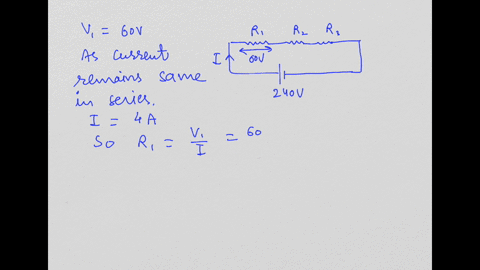 V₁ = 60V
As current
remains same
in series.
I = 4A
So R₁ = V₁/I = 60
R₁ R₂ R₃
I
60V
240V